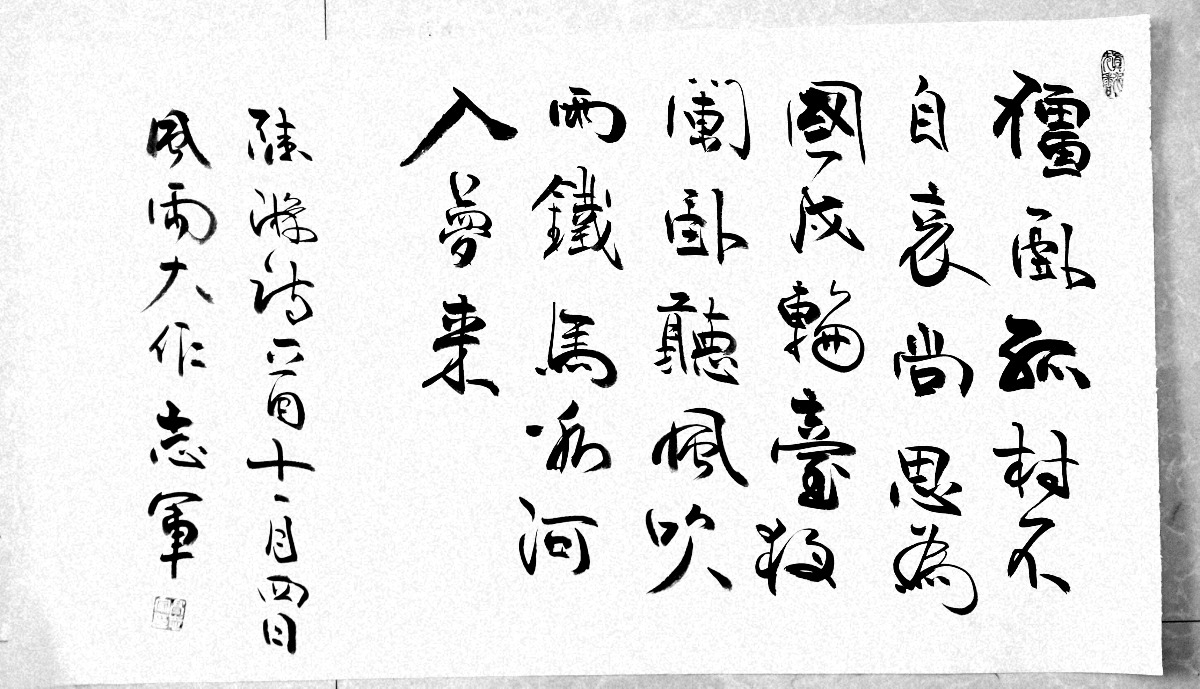 僵臥孤村不
自哀尚思為
國戍輪臺夜
闌臥聽風吹
雨鐵馬冰河
入夢來
陸游詩一首十一月四日
風雨大作志軍